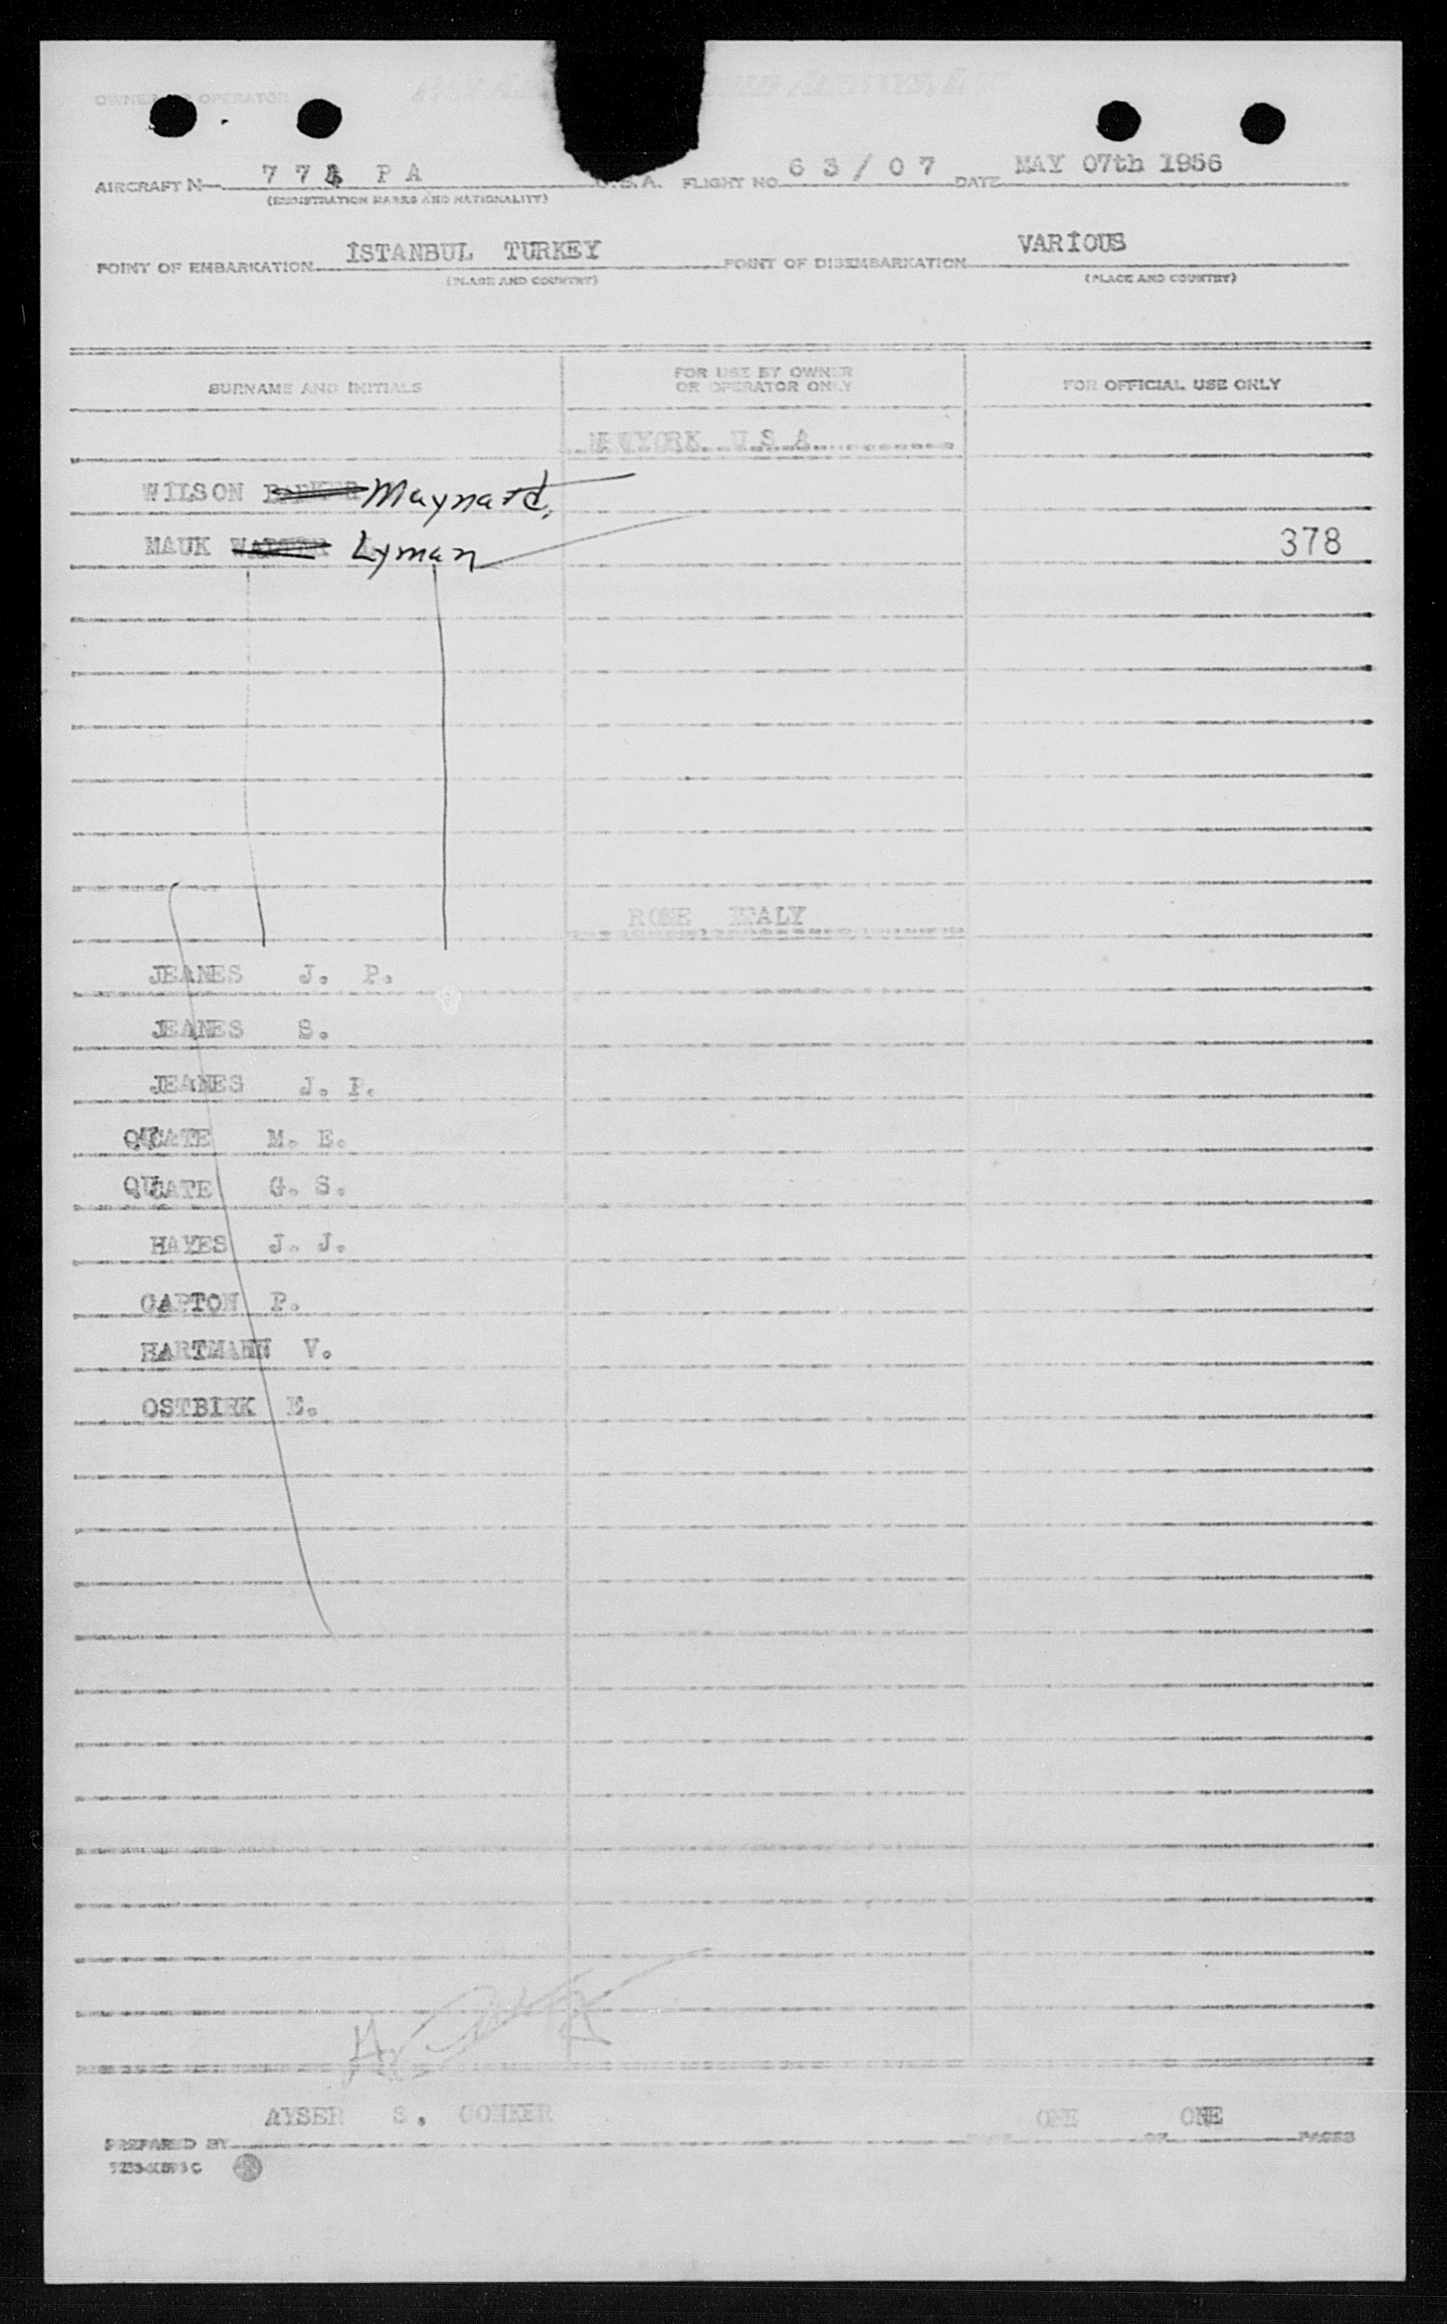 OWNER OR OPERATOR
AIRCRAFT N 77 PA U.S.A. FLIGHT NO. 63/07 DATE MAY 07th 1956
(REGISTRATION MARKS AND NATIONALITY)
POINT OF EMBARKATION İSTANBUL TURKEY POINT OF DISEMBARKATION VARİOUS
(PLACE AND COUNTRY) (PLACE AND COUNTRY)
SURNAME AND INITIALS FOR USE BY OWNER OR OPERATOR ONLY FOR OFFICIAL USE ONLY
NEWYORK U S A
WILSON Maynard,
MAUK Lyman 378
ROME ITALY
JEANES J. P.
JEANES S.
JEANES J. P.
QUATE M. E.
QUATE G. S.
HAYES J. J.
P.
HARTMANN V.
OSTBIRK E.
AYSER S.
PREPARED BY ONE OF ONE PAGES